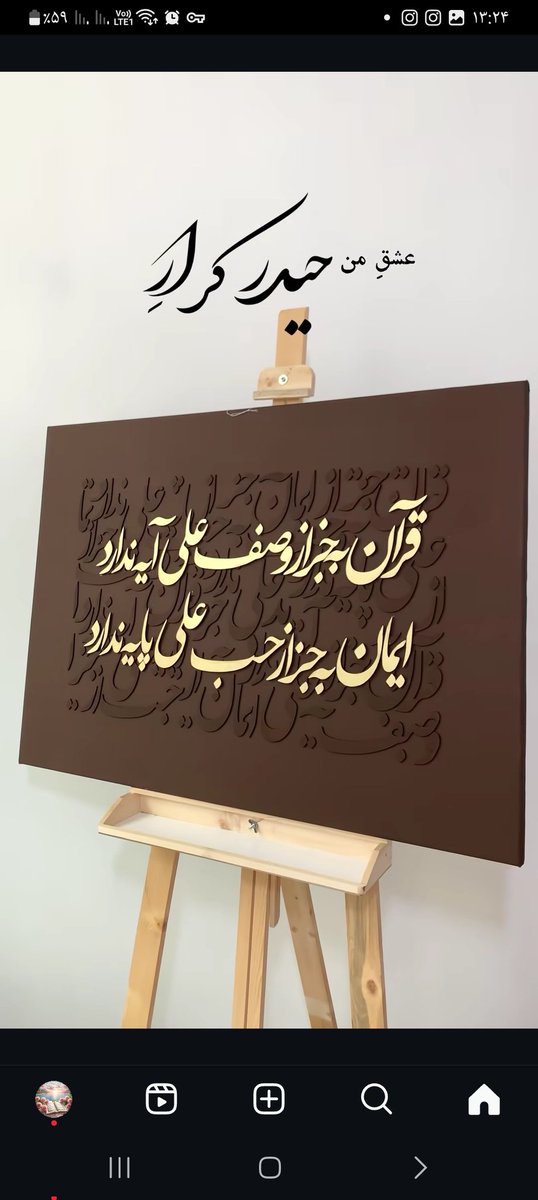 ٪۵۹
Vo))
LTE1
۱۳:۲۴
عشقِ من حیدر کرارِ
قرآن به جز از وصف علی آیه ندارد
ایمان به جز از حب علی پایه ندارد